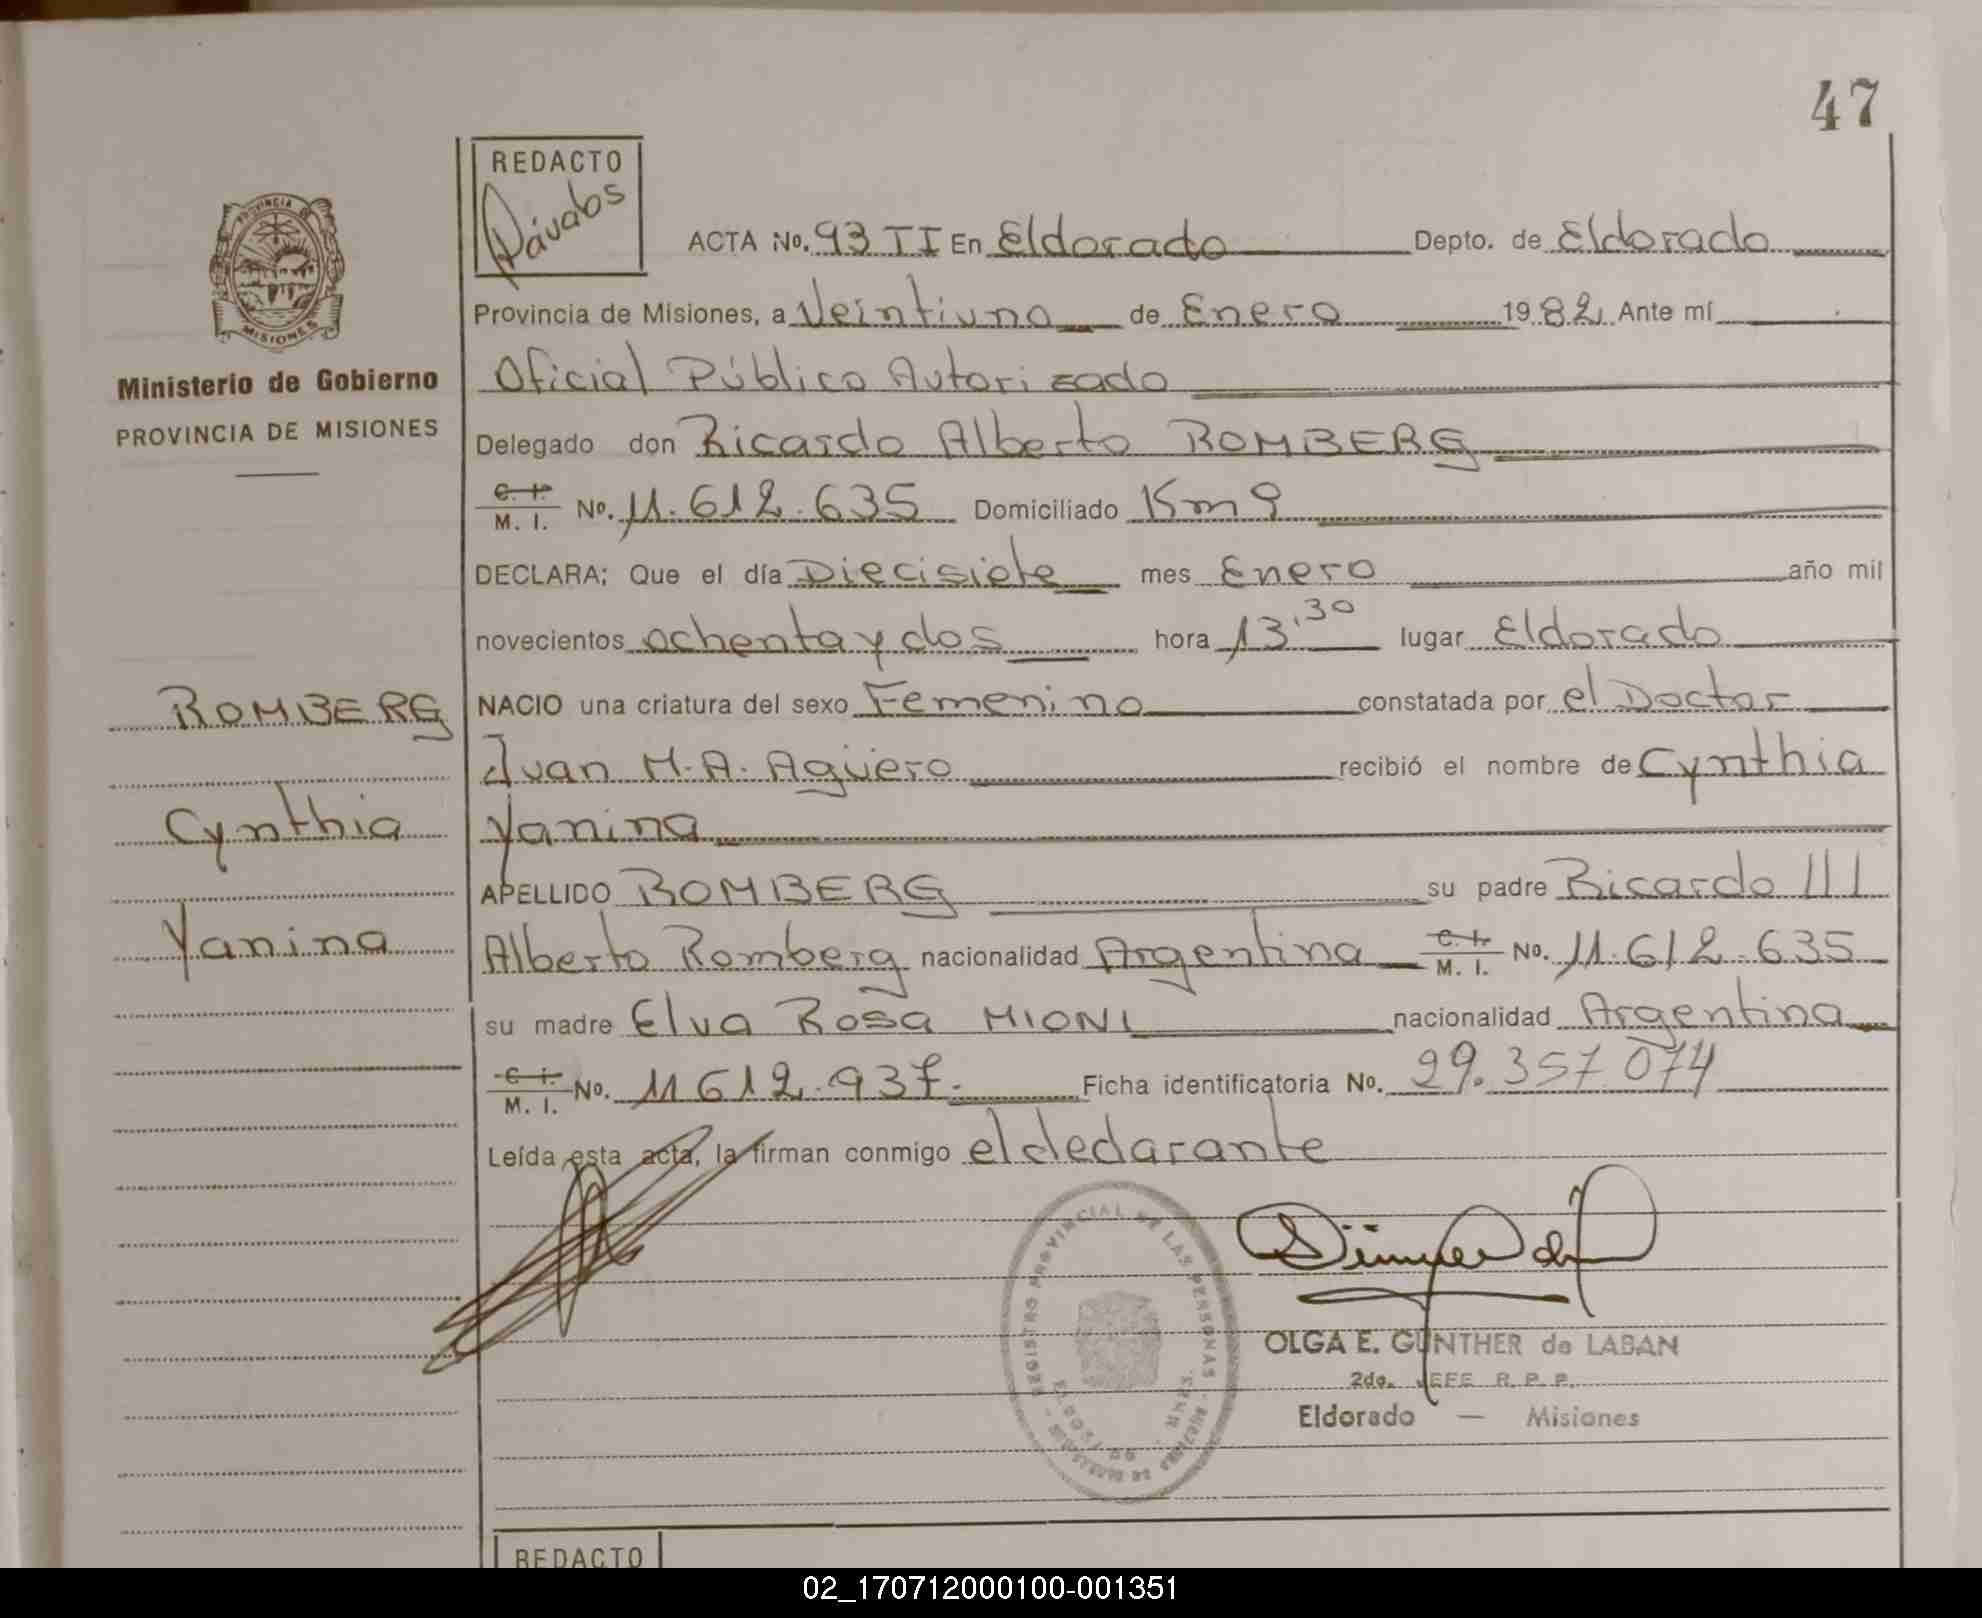 47
REDACTO
Dávalos
PROVINCIA DE
MISIONES
Ministerio de Gobierno
PROVINCIA DE MISIONES
ACTA No. 93 II En Eldorado Depto. de Eldorado
Provincia de Misiones, a Veintiuno de Enero 1982 Ante mí
Oficial Público Autorizado
Delegado don Ricardo Alberto ROMBERG
C. I. M. I. No. 11.612.635 Domiciliado Km 9
DECLARA: Que el día Diecisiete mes Enero año mil
novecientos ochenta y dos hora 13,30 lugar Eldorado
ROMBERG
NACIO una criatura del sexo Femenino constatada por el Doctor
Juan M. A. Agüero recibió el nombre de Cynthia
Cynthia
Yanina
APELLIDO ROMBERG su padre Ricardo III
Yanina
Alberto Romberg nacionalidad Argentina C. I. M. I. No. 11.612.635
su madre Elva Rosa MIONI nacionalidad Argentina
C. I. M. I. No. 11 612.937. Ficha identificatoria No. 29.357.074
Leída esta acta, la firman conmigo el declarante
REGISTRO PROVINCIAL DE LAS PERSONAS
OLGA E. GUNTHER de LABAN
2do. JEFE R. P. P.
Eldorado — Misiones
REDACTO
02_170712000100-001351